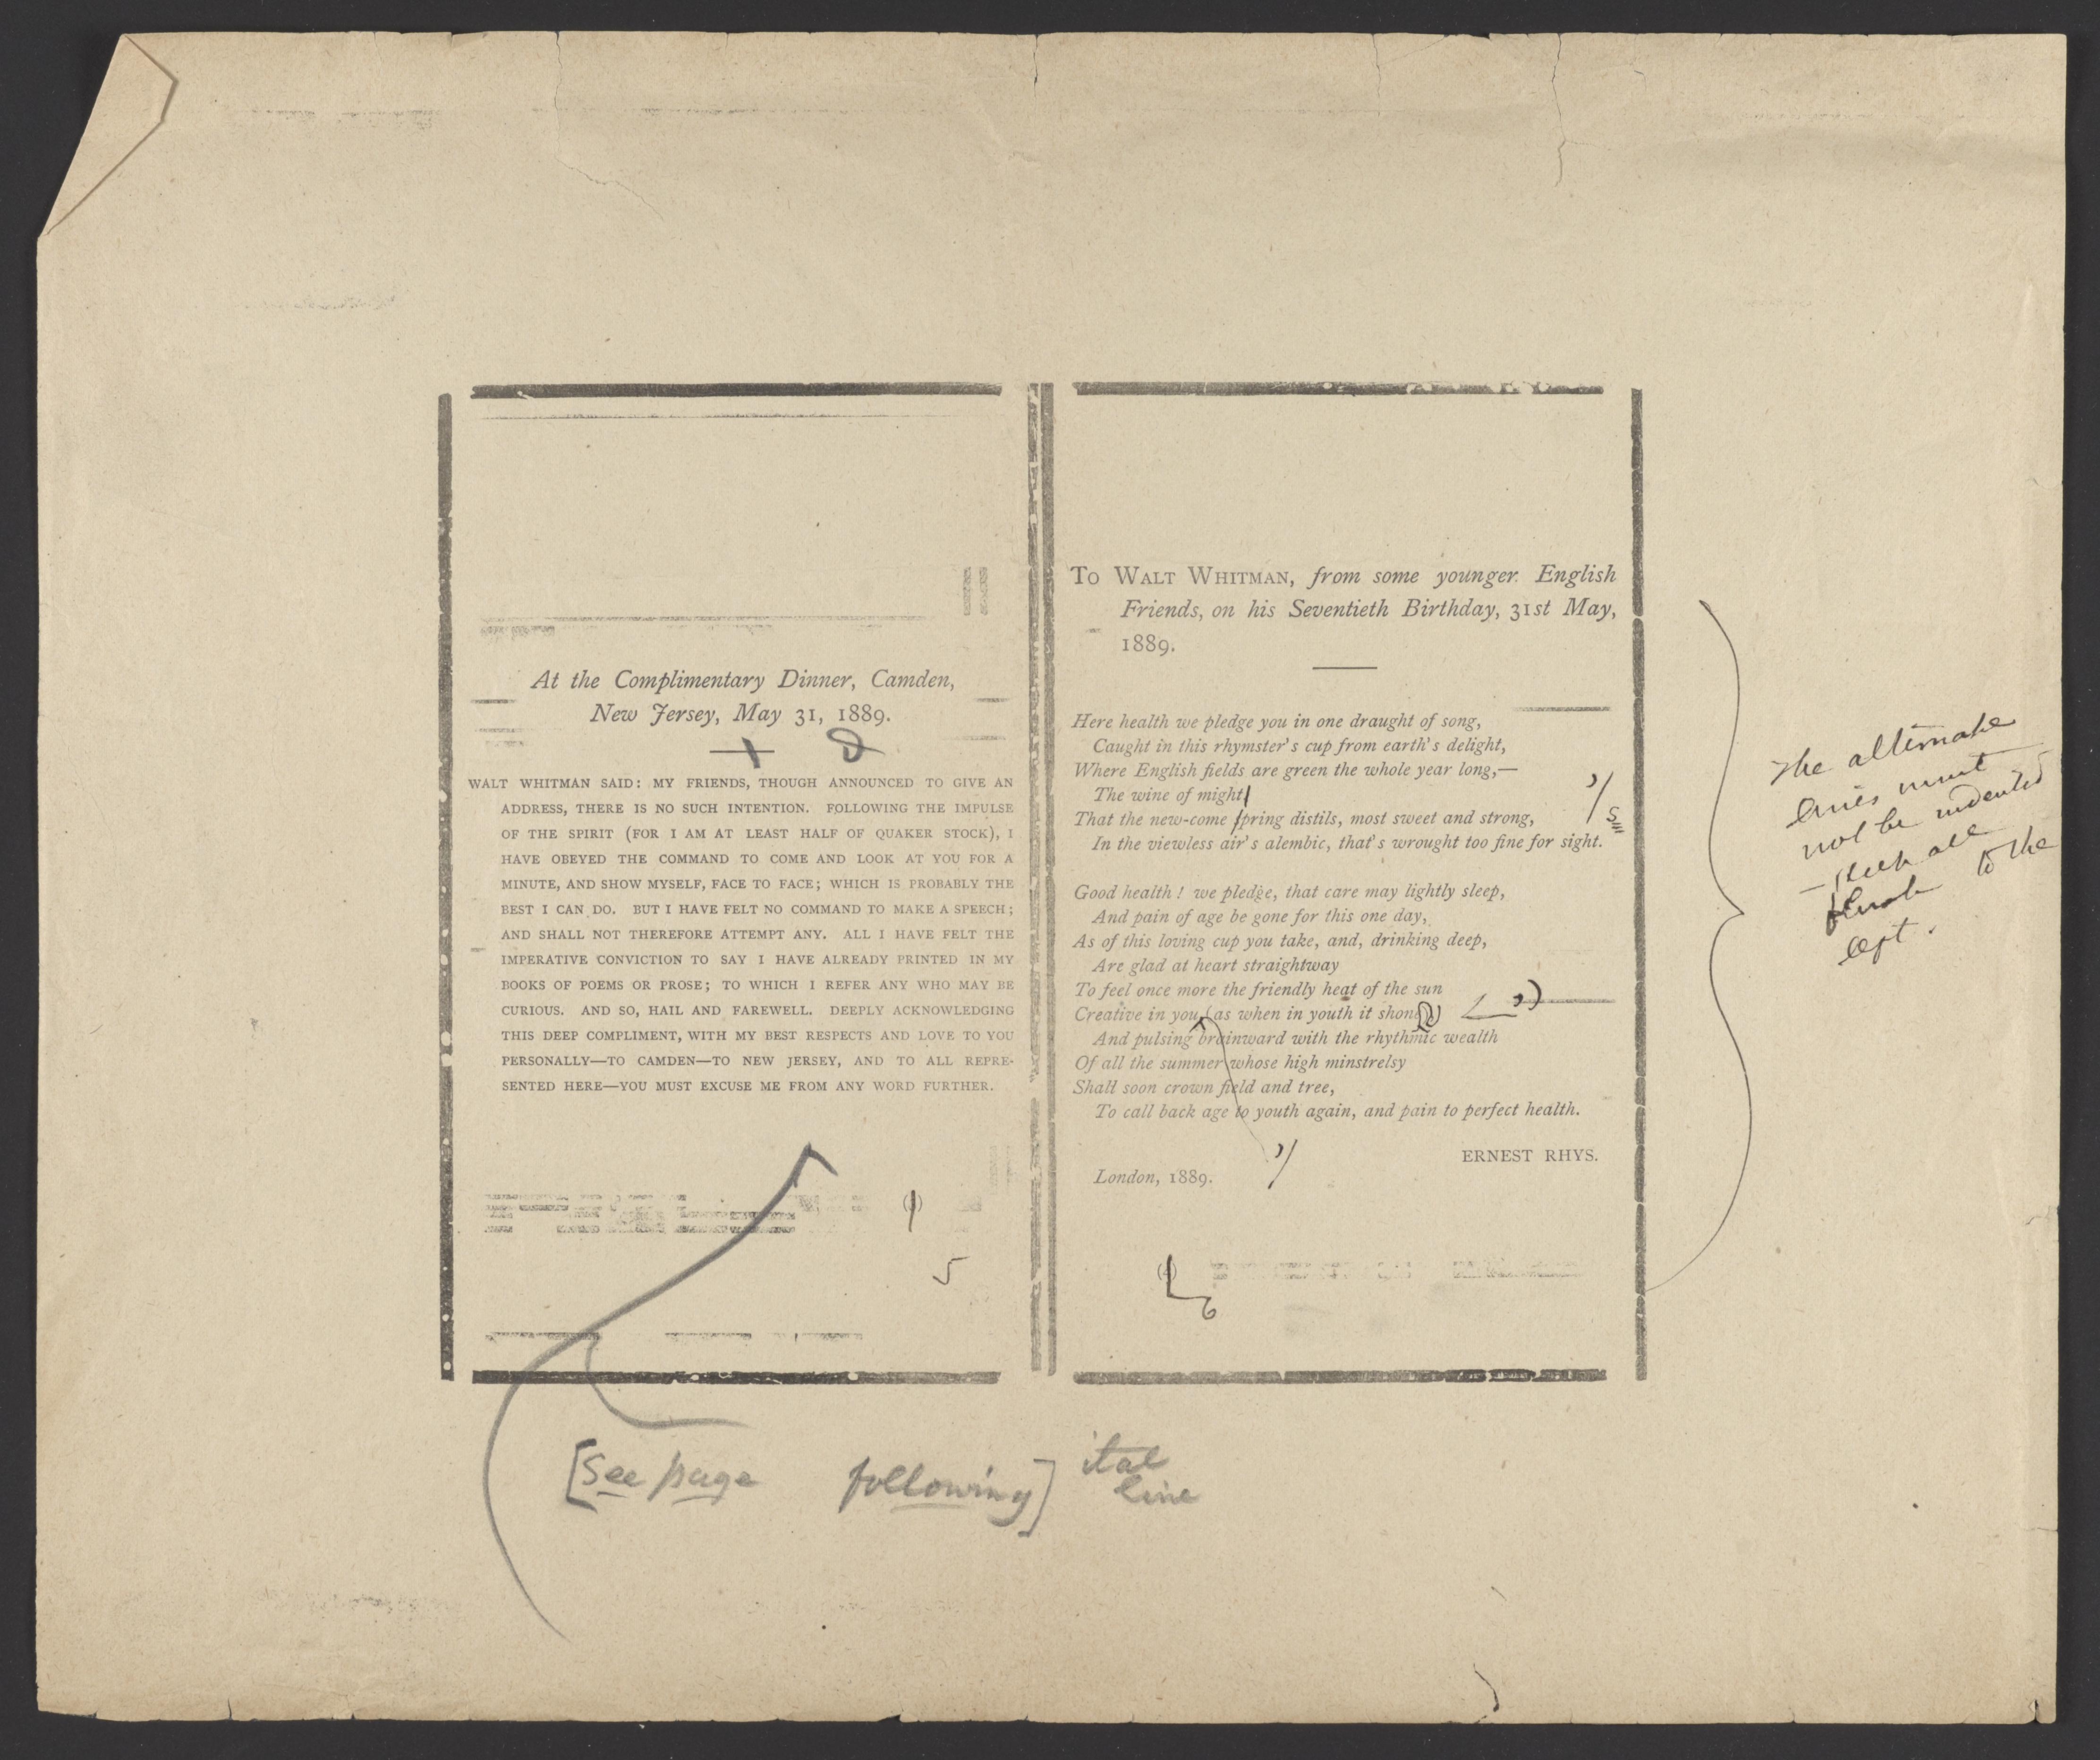 At the Complimentary Dinner, Camden,
New Jersey, May 31, 1889.
WALT WHITMAN SAID: MY FRIENDS, THOUGH ANNOUNCED TO GIVE AN
ADDRESS, THERE IS NO SUCH INTENTION. FOLLOWING THE IMPULSE
OF THE SPIRIT (FOR I AM AT LEAST HALF OF QUAKER STOCK), I
HAVE OBEYED THE COMMAND TO COME AND LOOK AT YOU FOR A
MINUTE, AND SHOW MYSELF, FACE TO FACE; WHICH IS PROBABLY THE
BEST I CAN DO. BUT I HAVE FELT NO COMMAND TO MAKE A SPEECH;
AND SHALL NOT THEREFORE ATTEMPT ANY. ALL I HAVE FELT THE
IMPERATIVE CONVICTION TO SAY I HAVE ALREADY PRINTED IN MY
BOOKS OF POEMS OR PROSE; TO WHICH I REFER ANY WHO MAY BE
CURIOUS. AND SO, HAIL AND FAREWELL. DEEPLY ACKNOWLEDGING
THIS DEEP COMPLIMENT, WITH MY BEST RESPECTS AND LOVE TO YOU
PERSONALLY—TO CAMDEN—TO NEW JERSEY, AND TO ALL REPRE-
SENTED HERE—YOU MUST EXCUSE ME FROM ANY WORD FURTHER.
5
[See page following] ital
line
To Walt Whitman, from some younger English
Friends, on his Seventieth Birthday, 31st May,
1889.
Here health we pledge you in one draught of song,
Caught in this rhymster's cup from earth's delight,
Where English fields are green the whole year long,—
The wine of might
That the new-come spring distils, most sweet and strong,
In the viewless air's alembic, that's wrought too fine for sight.
Good health! we pledge, that care may lightly sleep,
And pain of age be gone for this one day,
As of this loving cup you take, and, drinking deep,
Are glad at heart straightway
To feel once more the friendly heat of the sun
Creative in you (as when in youth it shone)
And pulsing brainward with the rhythmic wealth
Of all the summer whose high minstrelsy
Shall soon crown field and tree,
To call back age to youth again, and pain to perfect health.
ERNEST RHYS.
London, 1889.
6
The alternate
lines must
not be indented
—keep all
flush to the
left.